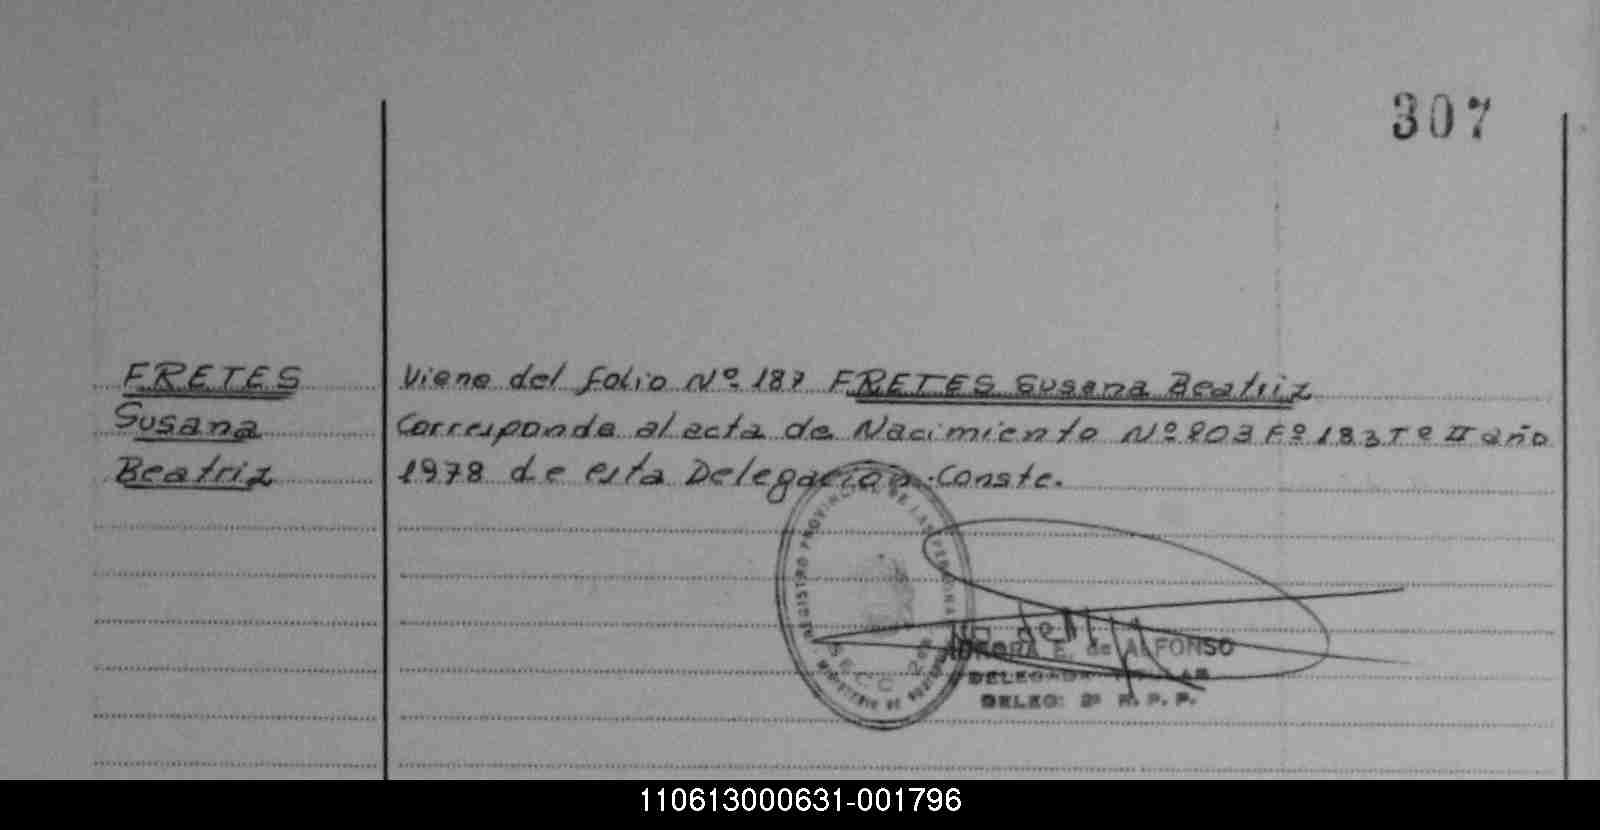 307
FRETES Viene del folio Nº 187 FRETES Susana Beatriz
Susana Corresponde al acta de Nacimiento Nº 203 Fº 183 Tº II año
Beatriz 1978 de esta Delegación. Conste.
REGISTRO PROVINCIAL DE LAS PERSONAS
MINISTERIO DE
AURORA E. de ALFONSO
DELEGADA
DELEG: 2ª R. P. P.
110613000631-001796